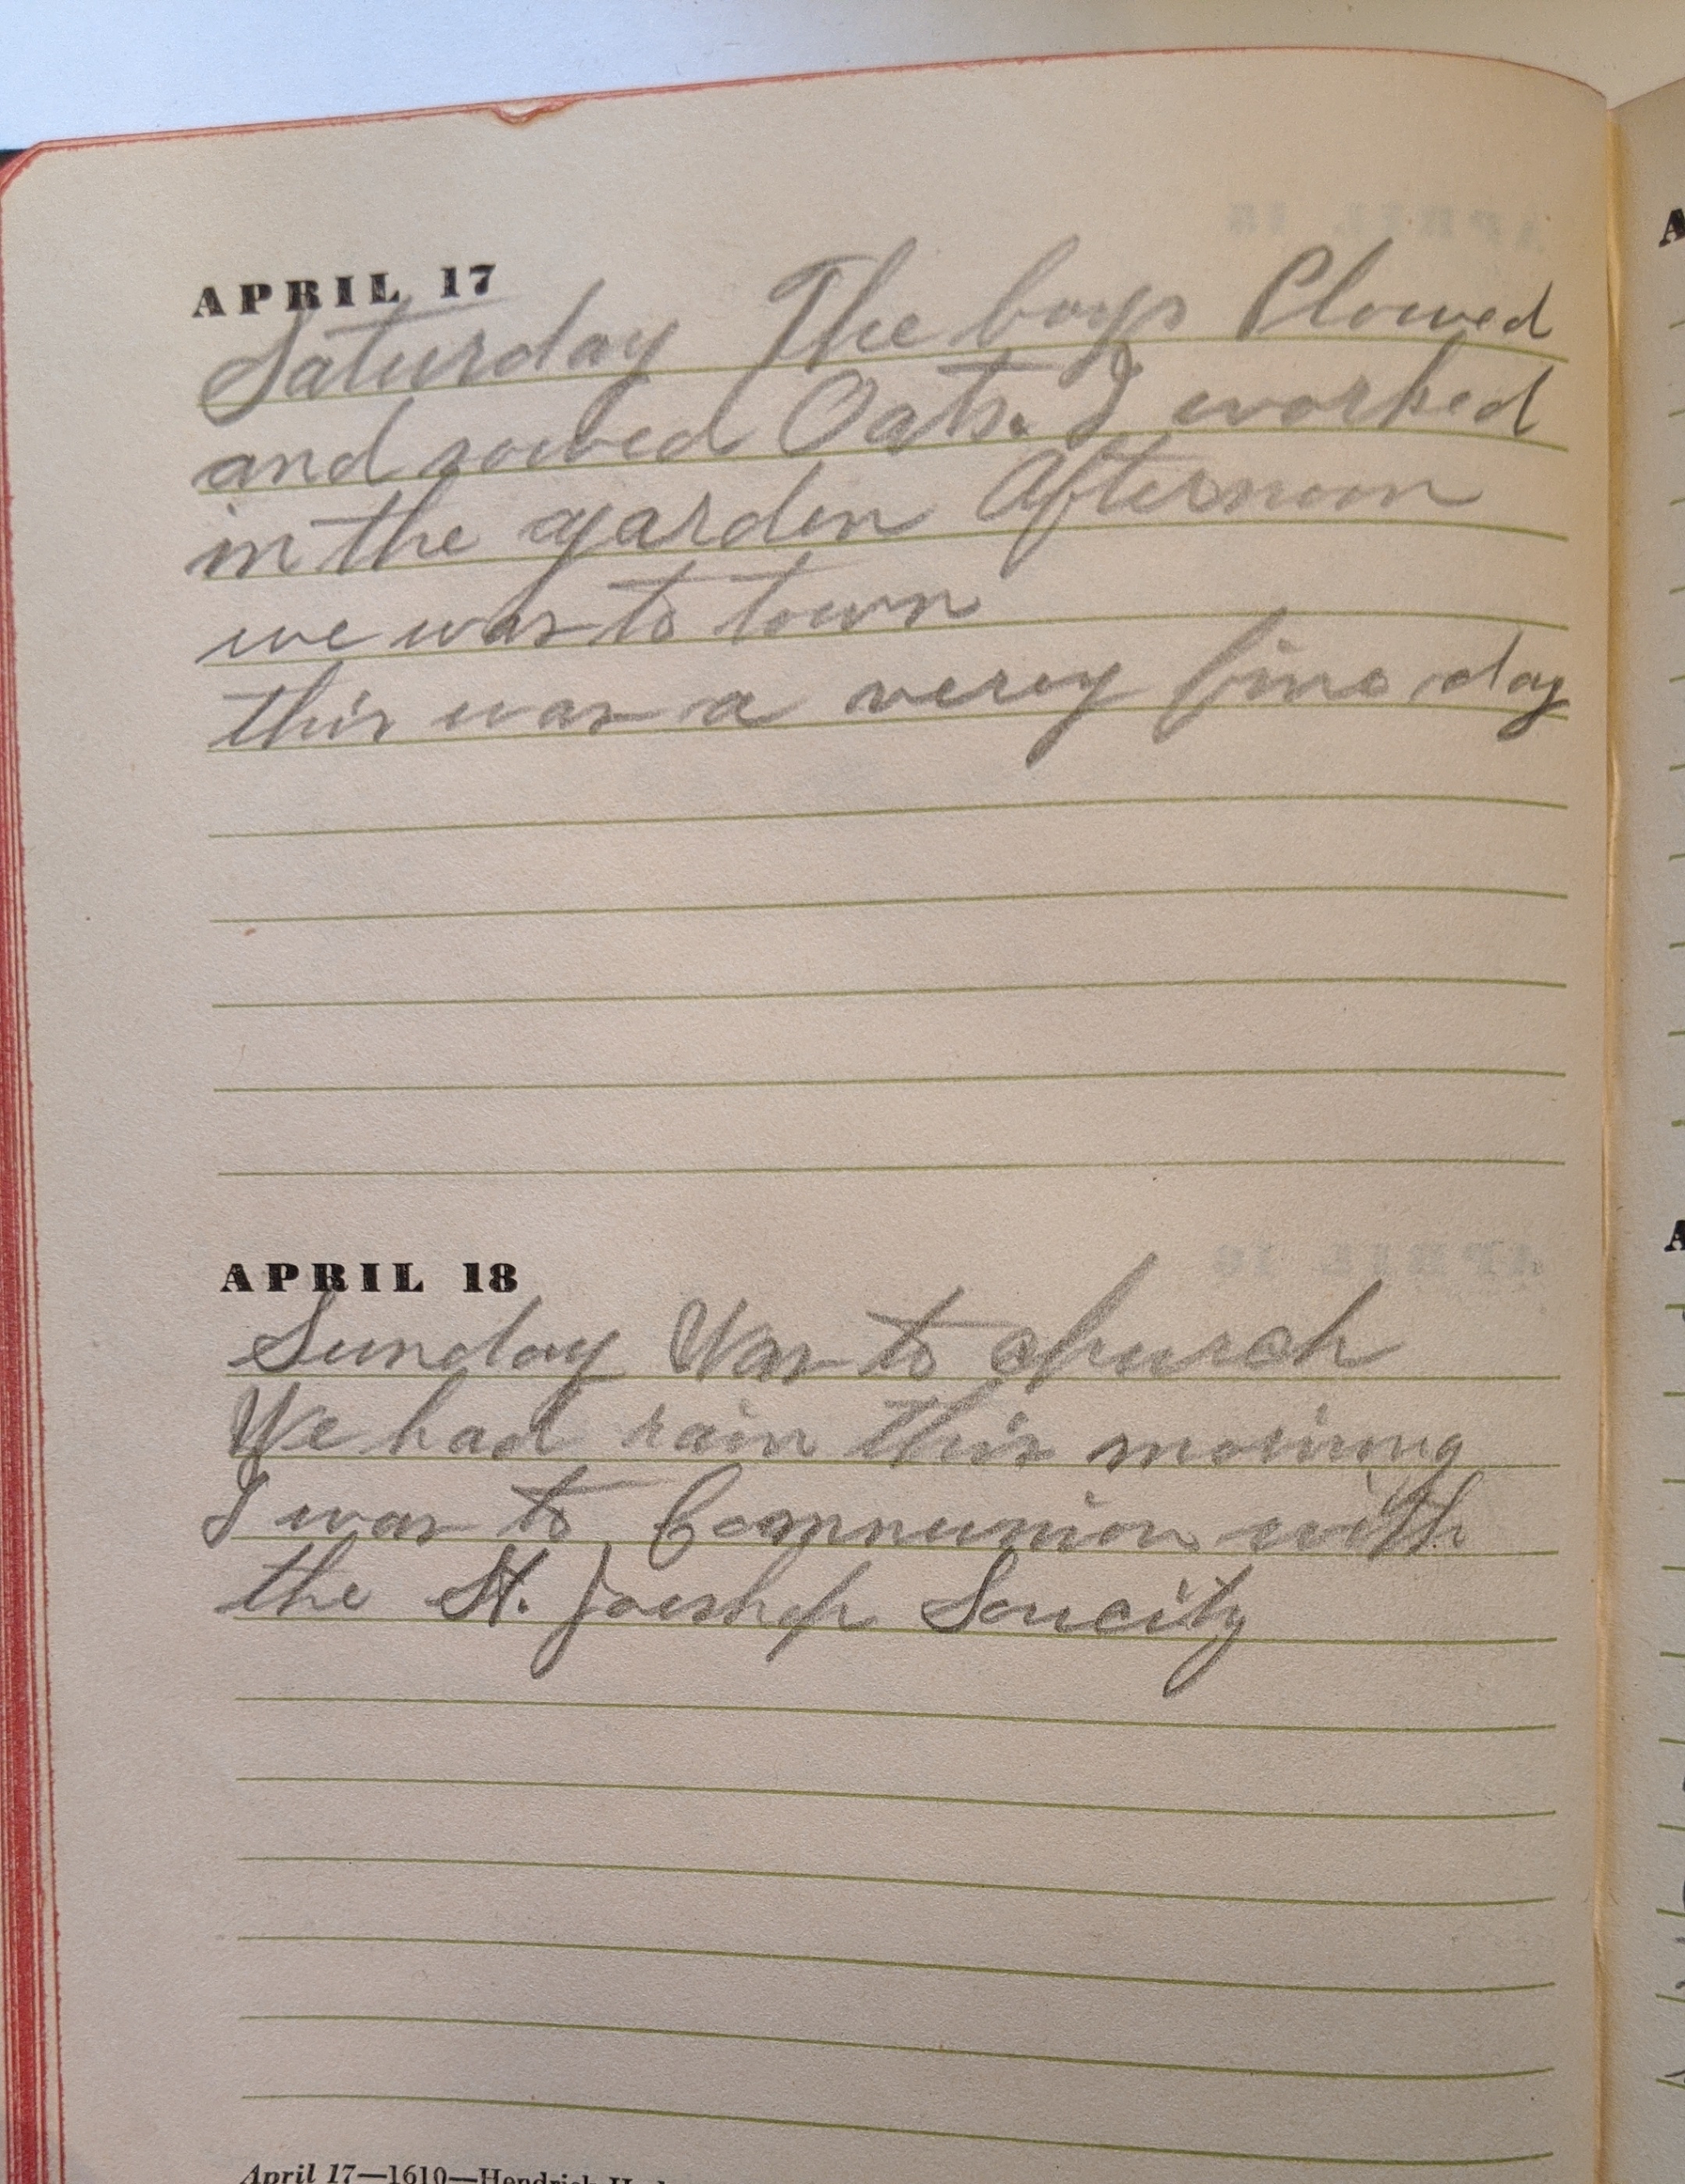 APRIL 17
Saturday The boys Plowed
and sowed Oats. I worked
in the garden Afternoon
we was to town
this was a very fine day
APRIL 18
Sunday Was to church
We had rain this moring
I was to Communion with
the St. Joeshph Soucity
April 17—1610—Hendrick